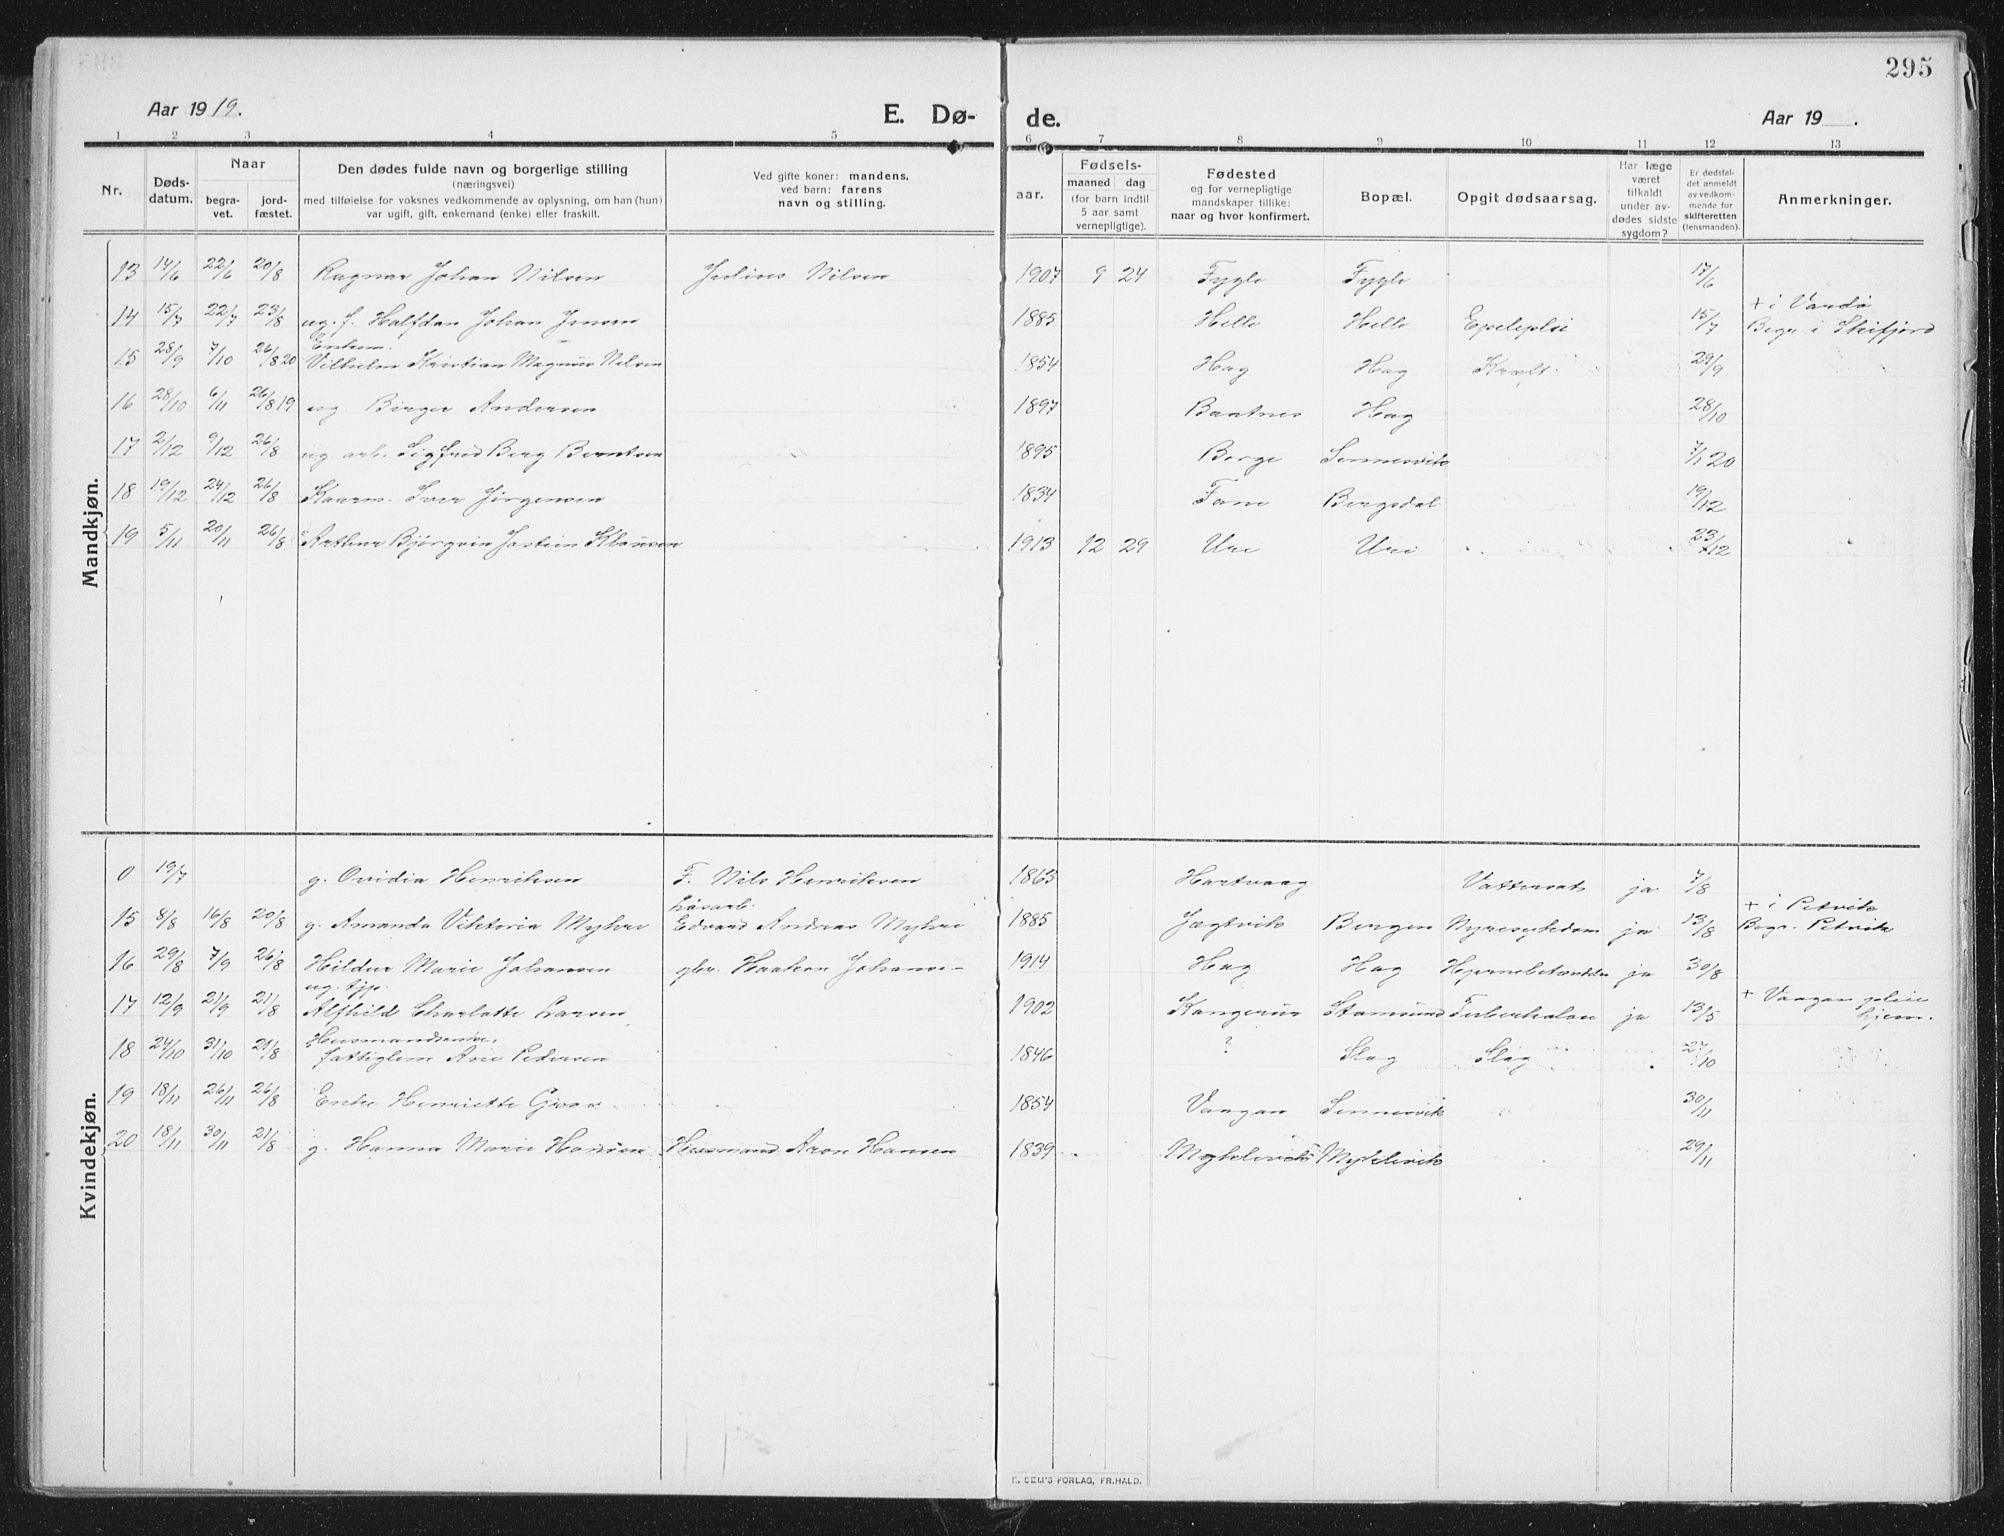 295
Aar 1919.
E. Dø-
de.
Aar 19 .
1 2 3 4 5 6 7 8 9 10 11 12 13
Nr.
Døds-
datum.
Naar
begra-
vet.
jord-
fæstet.
Den dødes fulde navn og borgerlige stilling
(næringsvei)
med tilføielse for voksnes vedkommende av oplysning, om han (hun)
var ugift, gift, enkemand (enke) eller fraskilt.
Ved gifte koner: mandens,
ved barn: farens
navn og stilling.
aar.
Fødsels-
maaned dag
(for barn indtil
5 aar samt
vernepligtige).
Fødested
og for vernepligtige
mandskaper tillike:
naar og hvor konfirmert.
Bopæl.
Opgit dødsaarsag.
Har læge
været
tilkaldt
under av-
dødes sidste
sygdom?
Er dødsfal-
det anmeldt
av vedkom-
mende for
skifteretten
(lensmanden).
Anmerkninger.
Mandkjøn.
13 14/6 22/6 20/8 Ragnar Johan Nilsen Nilsen 1907 9 24 Fygle Fygle 17/6
+ i Vardø
14 15/7 22/7 23/8 ug. f. Halfdan Johan Jensen 1885 Helle Helle 15/7 Begr i
Enkem.
15 28/9 7/10 26/8 20 Vilhelm Kristian Magnus Nilsen 1854 Hag Hag Kræft 29/9
16 28/10 6/11 26/8 19 ug. Birger Andersen 1897 Hag 28/10
17 2/12 9/12 26/8 ug. arb. Sigfred Berg Berntsen 1895 Borge Sennesvik 7/1 20
18 19/12 24/12 26/8 Kaarm. Iver Jørgensen 1834 Fane Bergsdal 19/12
19 5/11 20/11 26/8 Arthur Bjørgvin Klausen 1913 12 29 Ure Ure 23/12
Kvindekjøn.
0 19/7 g. Ovidia Henriksen F. Nils Henriksen 1863 Hartvaag Vattersot ja 7/8
Løsarb. + i Petvik
15 8/8 16/8 20/8 g. Amanda Viktoria Myhre Edvard Andreas Myhre 1885 Jægtvik Bergen Nyresykdom ja 13/8 Begr. Petvik
16 29/8 7/9 26/8 Hildur Marie Johansen gbr. Haakon 1914 Hag Hag ja 30/8
ug. tjp. + Vaagan pleie
17 12/9 21/9 21/8 Alfhild Charlotte Larsen 1902 Stamsund ja 13/5 hjem.
18 24/10 31/10 21/8 fattiglem Ane Pedersen 1846 ? Slag Slag 27/10
19 18/11 26/11 26/8 Enke Henriette 1854 Vaagan Sennesvik 30/11
20 18/11 30/11 21/8 g. Hanna Marie Hansen Husmand Aron Hansen 1839 Myklevik 29/11
E. SEM'S FORLAG, FR.HALD.